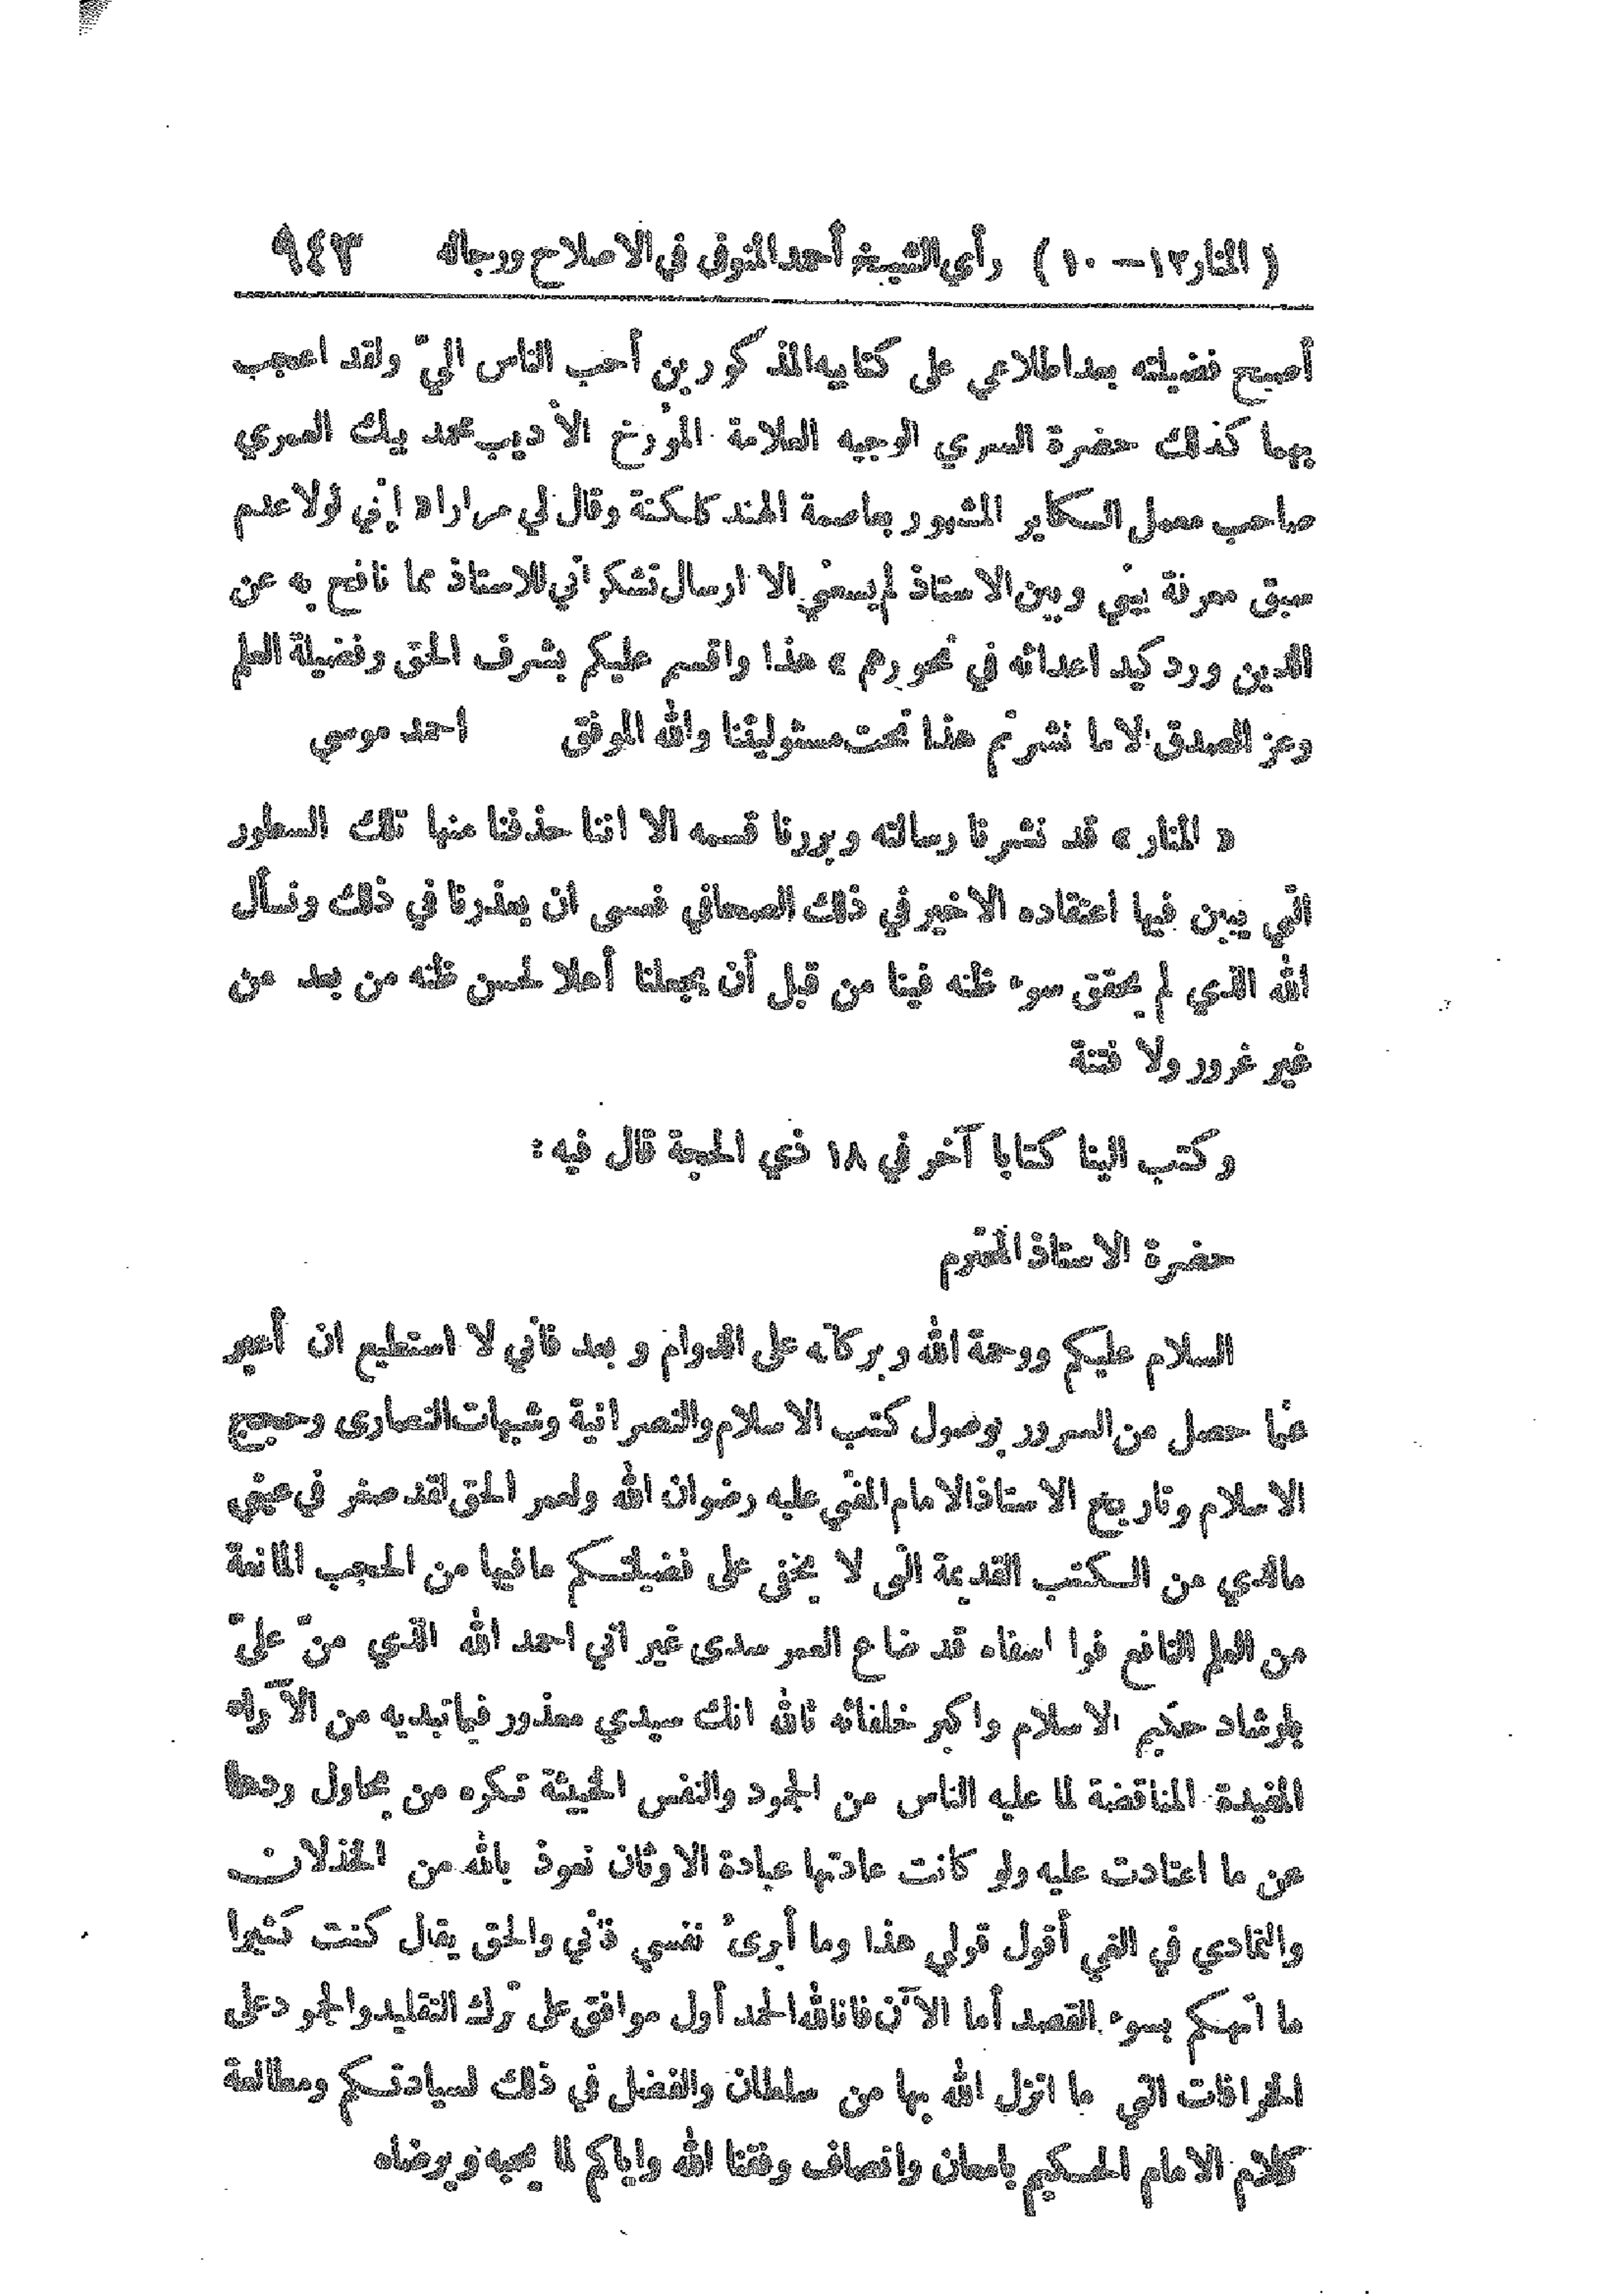 ( المنار ١٢ — ١٠ ) رأي الشيخ أحمد المنوفي في الاصلاح ورجاله ٩٤٣
أصبح فضيلته بعد اطلاعي على كتابيه المذكورين أحب الناس اليّ ولقد اعجب
بهما كذلك حضرة السري الوجيه العلامة المؤرخ الأديب محمد بيك العمري
صاحب معمل السكاير المشهور بعاصمة الهند كلكتة وقال لي مرارا « إنني لولا عدم
سبق معرفة بيني وبين الاستاذ لم يسعني الا ارسال تشكراتي للاستاذ بما نافح به عن
الدين ورد كيد اعدائه في نحورهم » هذا واقسم عليكم بشرف الحق وفضيلة العلم
وعز الصدق الا ما نشرتم هذا تحت مسئوليتنا والله الموفق احمد موسي
« المنار » قد نشرنا رسالته وبررنا قسمه الا اننا حذفنا منها تلك السطور
التي يبين فيها اعتقاده الاخير في ذلك الصحافي فعسى ان يعذرنا في ذلك ونسأل
الله الذي لم يحقق سوء ظنه فينا من قبل أن يجعلنا أهلا لحسن ظنه من بعد من
غير غرور ولا فتنة
وكتب الينا كتابا آخر في ١٨ ذي الحجة قال فيه :
حضرة الاستاذ المحترم
السلام عليكم ورحمة الله وبركاته على الدوام وبعد فأني لا استطيع ان أعبر
عما حصل من السرور بوصول كتب الاسلام والنصرانية وشبهات النصارى وحجج
الاسلام وتاريخ الاستاذ الامام المفتي عليه رضوان الله ولعمر الحق لقد صغر في عيني
مالدي من الكتب القديمة التي لا يخفى على فضيلتكم مافيها من الحجب المانعة
من العلم النافع فوا اسفاه قد ضاع العمر سدى غير اني احمد الله الذي منّ عليّ
بارشاد حكيم الاسلام واكبر خلفائه تالله انك سيدي معذور فيما تبديه من الآراء
المفيدة المناقضة لما عليه الناس من الجمود والنفس الخبيثة تكره من يحاول ردها
عن ما اعتادت عليه ولو كانت عادتها عبادة الاوثان نعوذ بالله من الخذلان
والتمادي في الغي أقول قولي هذا وما أبرئ نفسي فأني والحق يقال كنت كثيرا
ما اتهمكم بسوء القصد أما الآن فانا لله الحمد أول موافق على ترك التقليد والجمود على
الخرافات التي ما انزل الله بها من سلطان والفضل في ذلك لسيادتكم ومطالعة
كلام الامام الحكيم بامعان وانصاف وفقنا الله واياكم لما يحبه ويرضاه